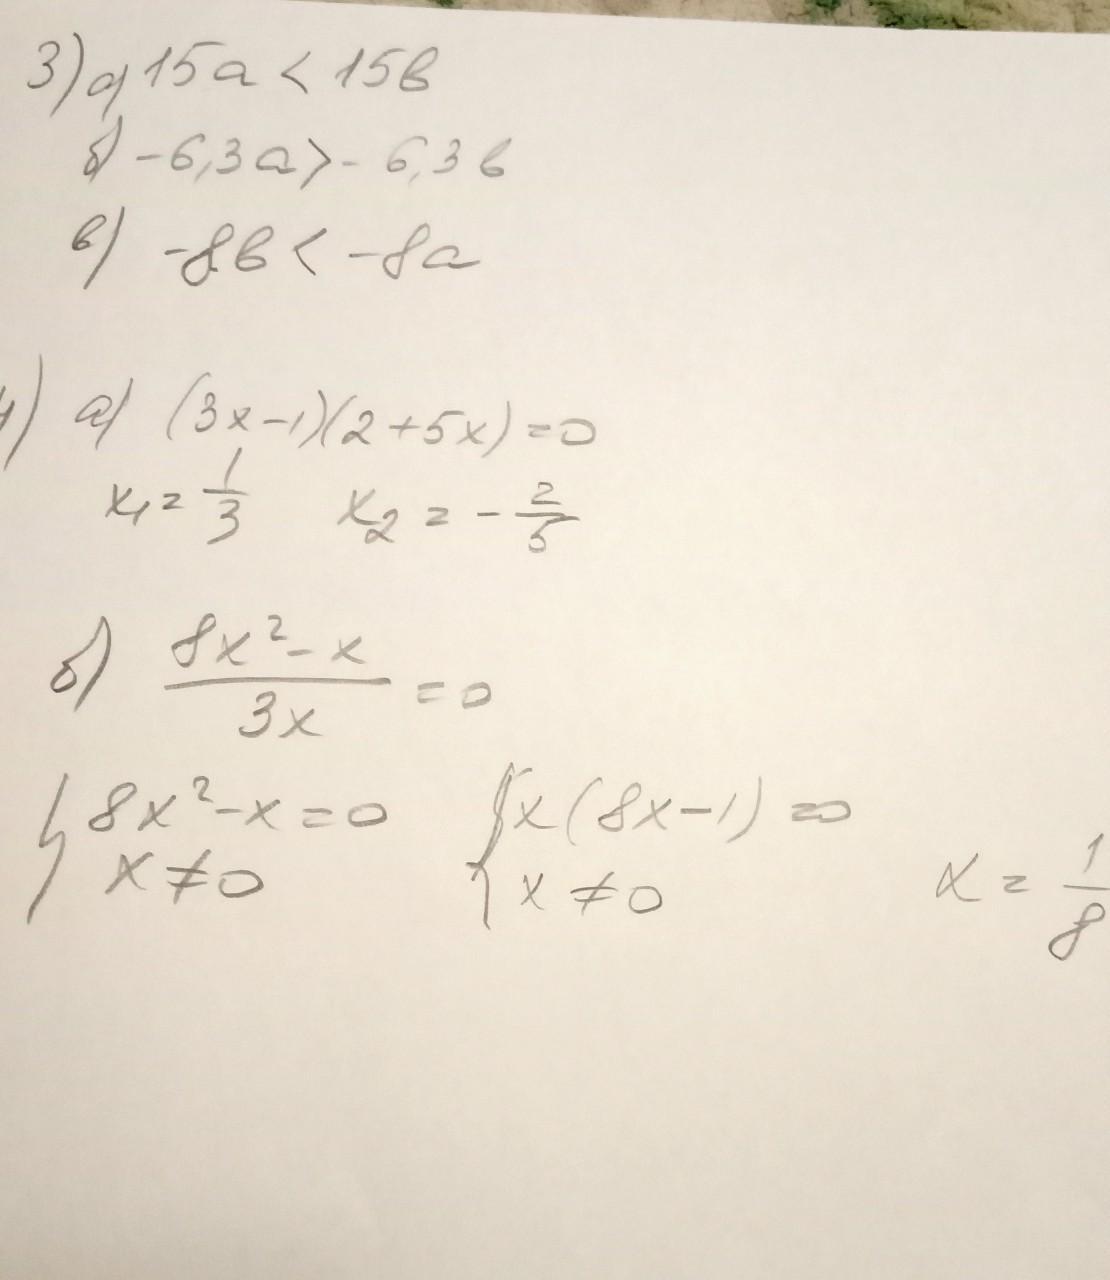 3) а) 15a < 15b
б) -6,3a > - 6,3b
в) -8b < -8a
4) а) (3x-1)(2+5x)=0
x₁ = 1/3 x₂ = - 2/5
б) (8x² - x)/(3x) = 0
{ 8x² - x = 0 { x(8x-1) = 0
x ≠ 0 x ≠ 0 x = 1/8